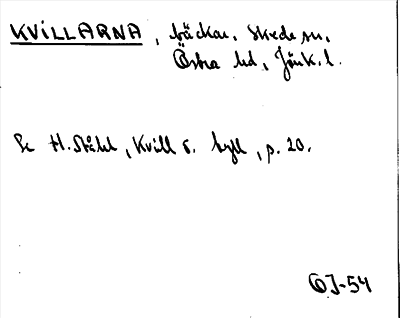 KVILLARNA, bäckar, Skede sn,
Östra hd, Jönk. l.
Se H. Ståhl, Kvill o. byll, p. 20.
OJ-54